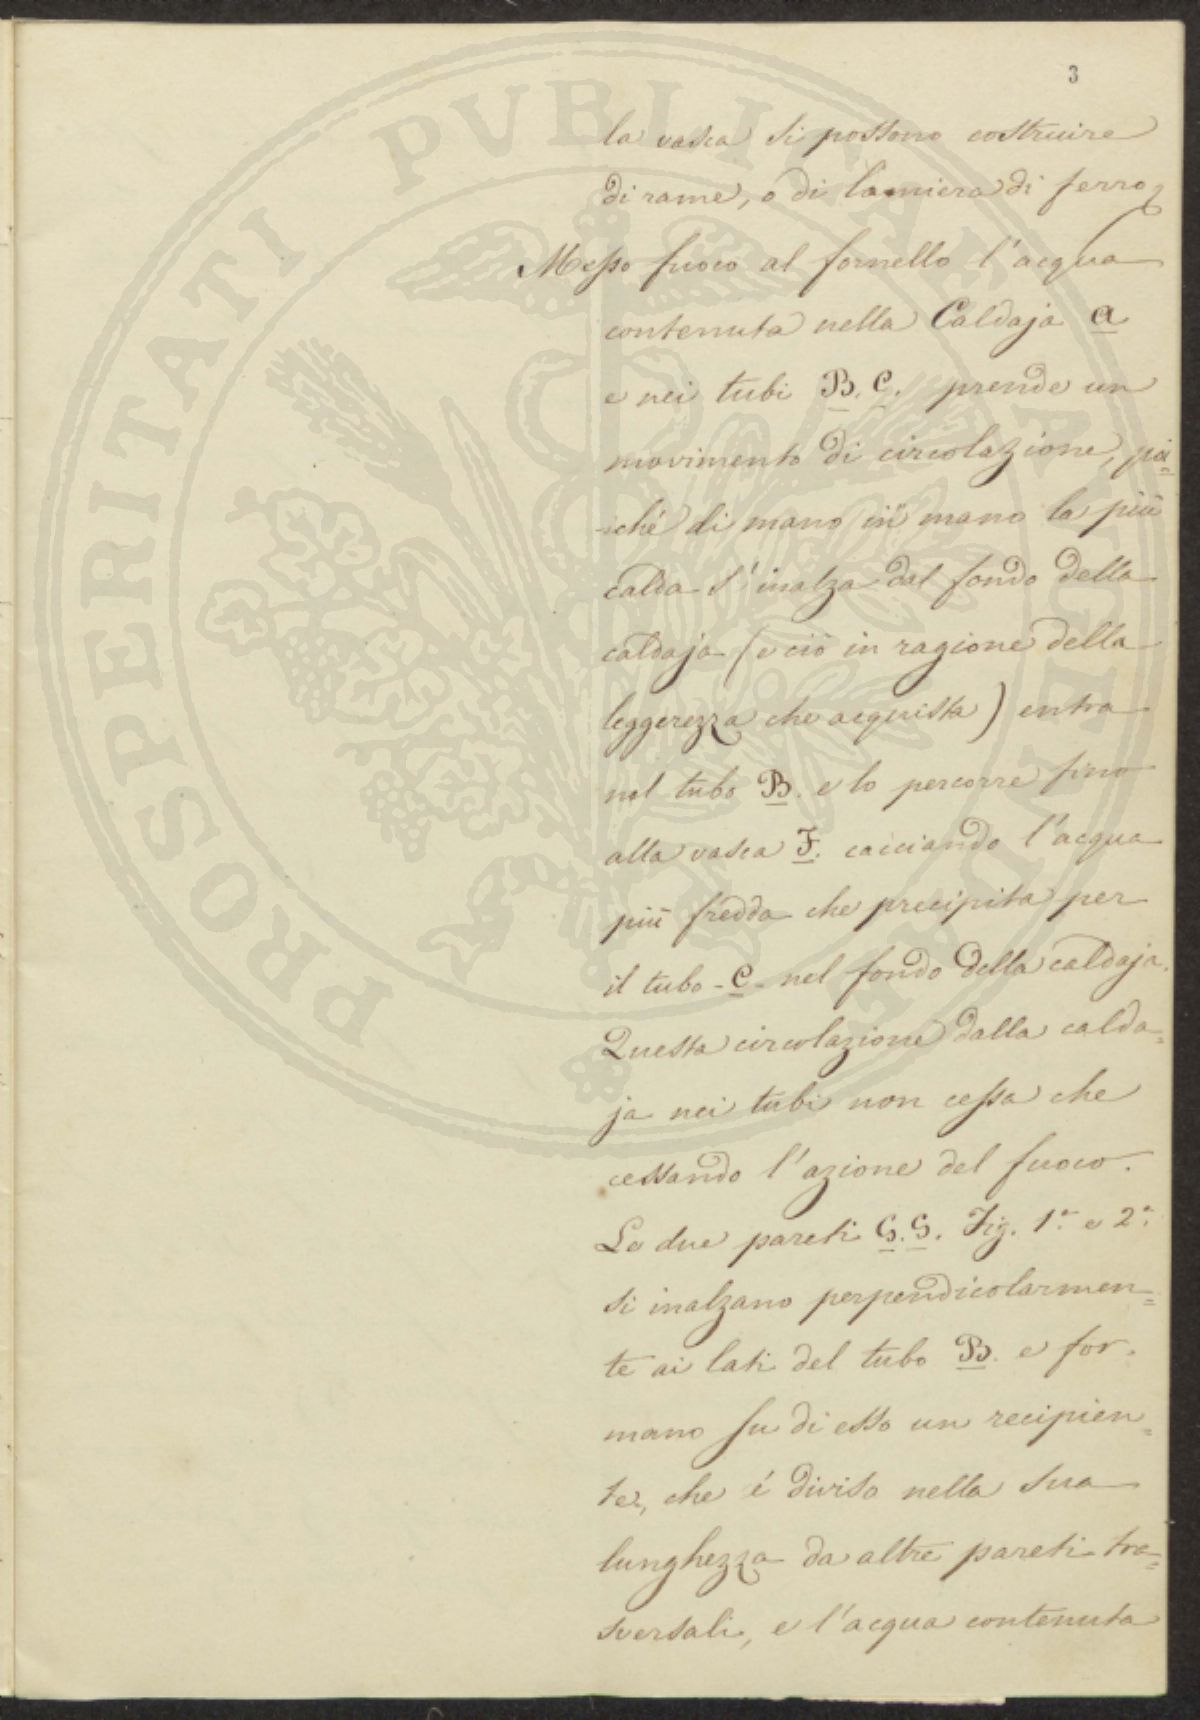 3
la vasca si possono costruire
di rame, o di lamiera di ferro,
Messo fuoco al fornello l'acqua
contenuta nella Caldaja a
e nei tubi B. C. prende un
movimento di circolazione, poi=
iché di mano in mano la più
calda s'inalza dal fondo della
caldaja (e ciò in ragione della
leggerezza che acquista) entra
nel tubo B. e lo percorre fino
alla vasca F. cacciando l'acqua
più fredda che precipita per
il tubo - C - nel fondo della caldaja.
Questa circolazione dalla calda=
ja nei tubi non cessa che
cessando l'azione del fuoco.
Le due pareti G. G. Fig. 1ª e 2ª
si inalzano perpendicolarmen=
te ai lati del tubo B. e for=
mano su di esso un recipien=
te, che é diviso nella sua
lunghezza da altre pareti tra=
sversali, e l'acqua contenuta
PROSPERITATI PUBLICAE AUGENDAE